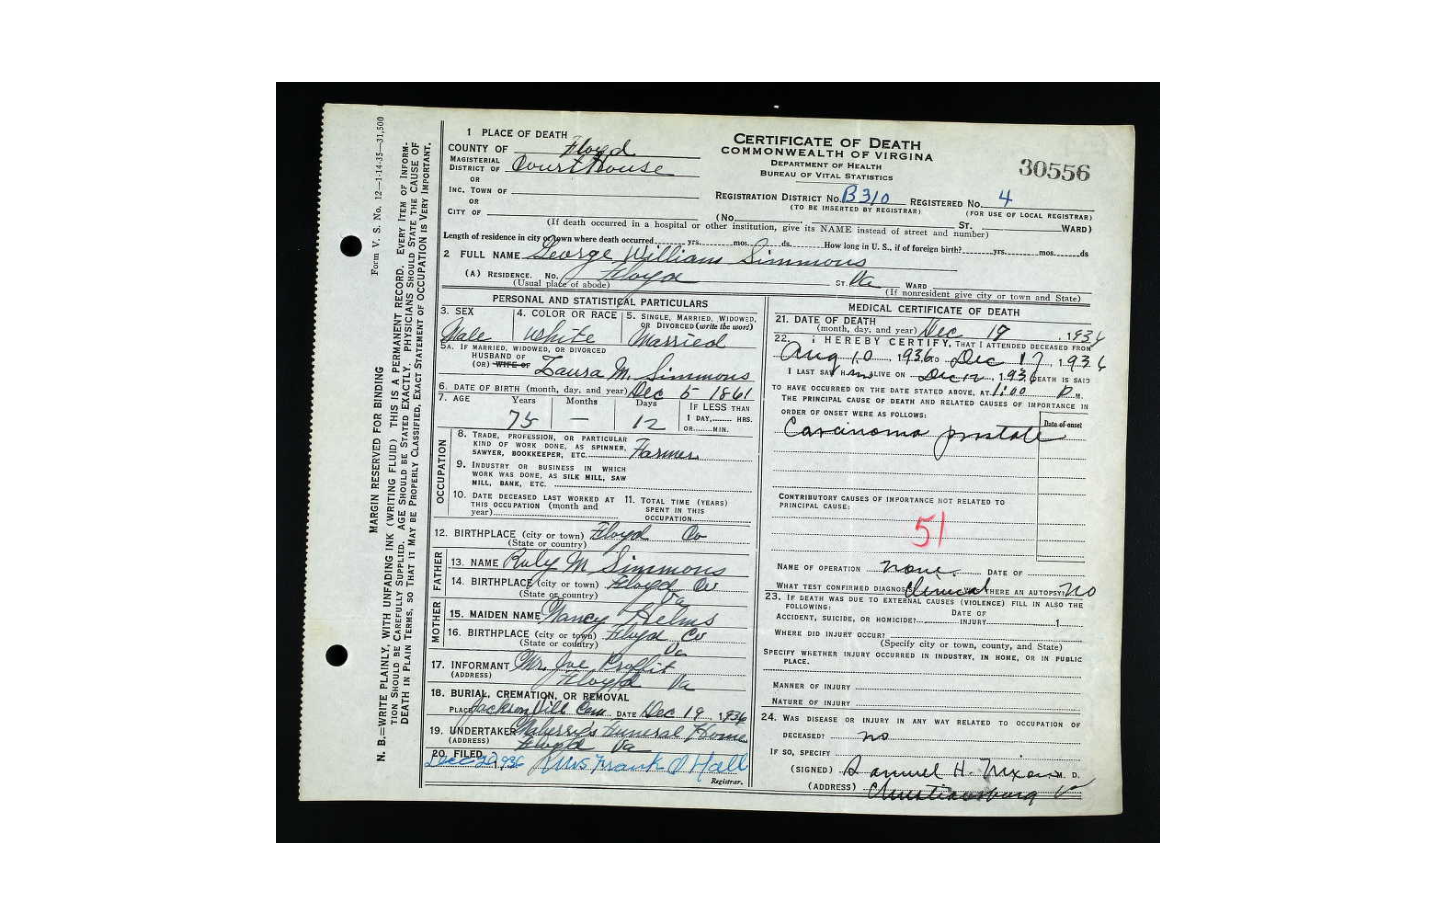 1 PLACE OF DEATH
COUNTY OF Floyd
MAGISTERIAL DISTRICT OF Court House
OR
INC. TOWN OF
OR
CITY OF
CERTIFICATE OF DEATH
COMMONWEALTH OF VIRGINIA
DEPARTMENT OF HEALTH
BUREAU OF VITAL STATISTICS
30556
REGISTRATION DISTRICT NO. B310 REGISTERED NO. 4
(TO BE INSERTED BY REGISTRAR) (FOR USE OF LOCAL REGISTRAR)
(No. ST. WARD)
(If death occurred in a hospital or other institution, give its NAME instead of street and number)
Length of residence in city or town where death occurred yrs. mos. ds. How long in U. S., if of foreign birth? yrs. mos. ds
2 FULL NAME George William Simmons
(A) RESIDENCE. No. Floyd ST. Va WARD
(Usual place of abode) (If nonresident give city or town and State)
PERSONAL AND STATISTICAL PARTICULARS
3. SEX 4. COLOR OR RACE 5. SINGLE, MARRIED, WIDOWED, OR DIVORCED (write the word)
Male white Married
5A. IF MARRIED, WIDOWED, OR DIVORCED
HUSBAND OF
(OR) WIFE OF Laura M. Simmons
6. DATE OF BIRTH (month, day, and year) Dec 5 1861
7. AGE Years Months Days IF LESS THAN
1 DAY, HRS.
OR MIN.
75 — 12
OCCUPATION
8. TRADE, PROFESSION, OR PARTICULAR
KIND OF WORK DONE, AS SPINNER,
SAWYER, BOOKKEEPER, ETC. Farmer
9. INDUSTRY OR BUSINESS IN WHICH
WORK WAS DONE, AS SILK MILL, SAW
MILL, BANK, ETC.
10. DATE DECEASED LAST WORKED AT
THIS OCCUPATION (month and
year)
11. TOTAL TIME (YEARS)
SPENT IN THIS
OCCUPATION
12. BIRTHPLACE (city or town) Floyd Co
(State or country)
FATHER
13. NAME Ruly M Simmons
14. BIRTHPLACE (city or town) Floyd Co
(State or country) Va
MOTHER
15. MAIDEN NAME Nancy Helms
16. BIRTHPLACE (city or town) Floyd Co
(State or country) Va
17. INFORMANT Mr. Joe Proffit
(ADDRESS) Floyd Va
18. BURIAL, CREMATION, OR REMOVAL
PLACE Jacksonvill Cem DATE Dec 19, 1936
19. UNDERTAKER Funeral Home
(ADDRESS) Floyd Va
20. FILED Dec 20, 1936 Mrs Frank D Hall
Registrar.
MEDICAL CERTIFICATE OF DEATH
21. DATE OF DEATH
(month, day, and year) Dec 17, 1936
22. I HEREBY CERTIFY, THAT I ATTENDED DECEASED FROM
Aug 10, 1936 TO Dec 17, 1936
I LAST SAW H im ALIVE ON Dec 12, 1936 DEATH IS SAID
TO HAVE OCCURRED ON THE DATE STATED ABOVE, AT 1:00 P M.
THE PRINCIPAL CAUSE OF DEATH AND RELATED CAUSES OF IMPORTANCE IN
ORDER OF ONSET WERE AS FOLLOWS:
Date of onset
Carcinoma prostate
CONTRIBUTORY CAUSES OF IMPORTANCE NOT RELATED TO
PRINCIPAL CAUSE:
51
NAME OF OPERATION none DATE OF
WHAT TEST CONFIRMED DIAGNOSIS Clinical THERE AN AUTOPSY? No
23. IF DEATH WAS DUE TO EXTERNAL CAUSES (VIOLENCE) FILL IN ALSO THE
FOLLOWING:
ACCIDENT, SUICIDE, OR HOMICIDE? DATE OF INJURY 1
WHERE DID INJURY OCCUR?
(Specify city or town, county, and State)
SPECIFY WHETHER INJURY OCCURRED IN INDUSTRY, IN HOME, OR IN PUBLIC
PLACE.
MANNER OF INJURY
NATURE OF INJURY
24. WAS DISEASE OR INJURY IN ANY WAY RELATED TO OCCUPATION OF
DECEASED? no
IF SO, SPECIFY
(SIGNED) Samuel H. M. D.
(ADDRESS) Christiansburg V
Form V. S. No. 12—1-14-35—31,500
MARGIN RESERVED FOR BINDING
N. B.—WRITE PLAINLY, WITH UNFADING INK (WRITING FLUID) THIS IS A PERMANENT RECORD. EVERY ITEM OF INFORM-
TION SHOULD BE CAREFULLY SUPPLIED. AGE SHOULD BE STATED EXACTLY. PHYSICIANS SHOULD STATE THE CAUSE OF
DEATH IN PLAIN TERMS, SO THAT IT MAY BE PROPERLY CLASSIFIED. EXACT STATEMENT OF OCCUPATION IS VERY IMPORTANT.